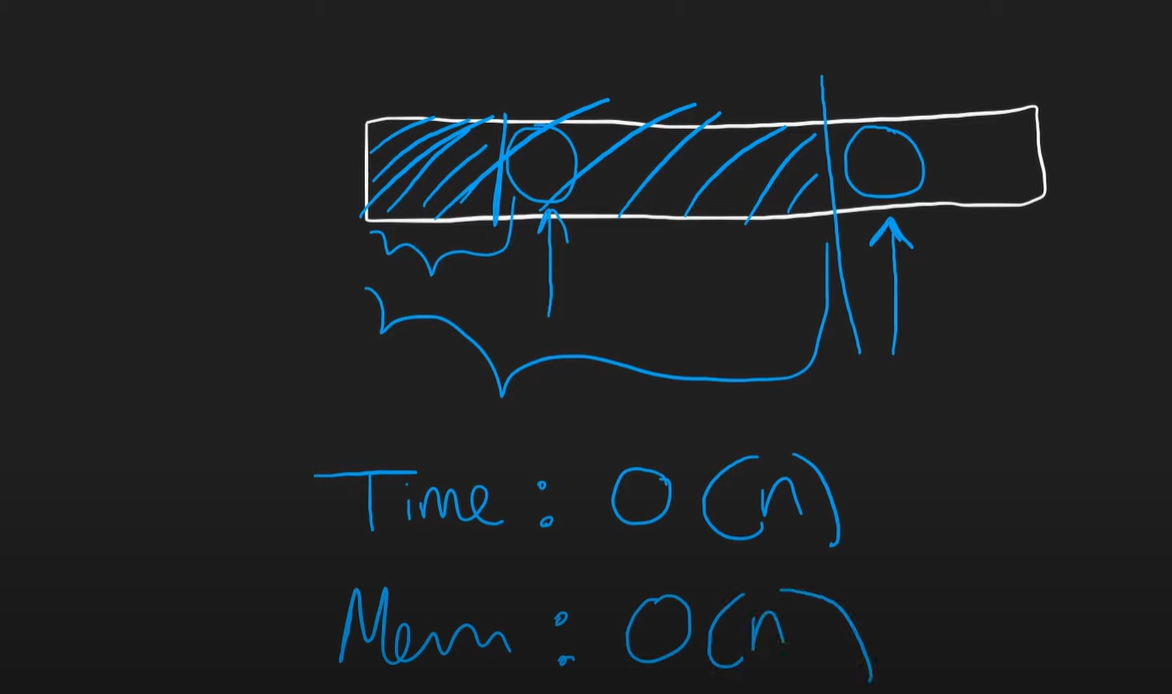 Time: O(n)
Mem: O(n)